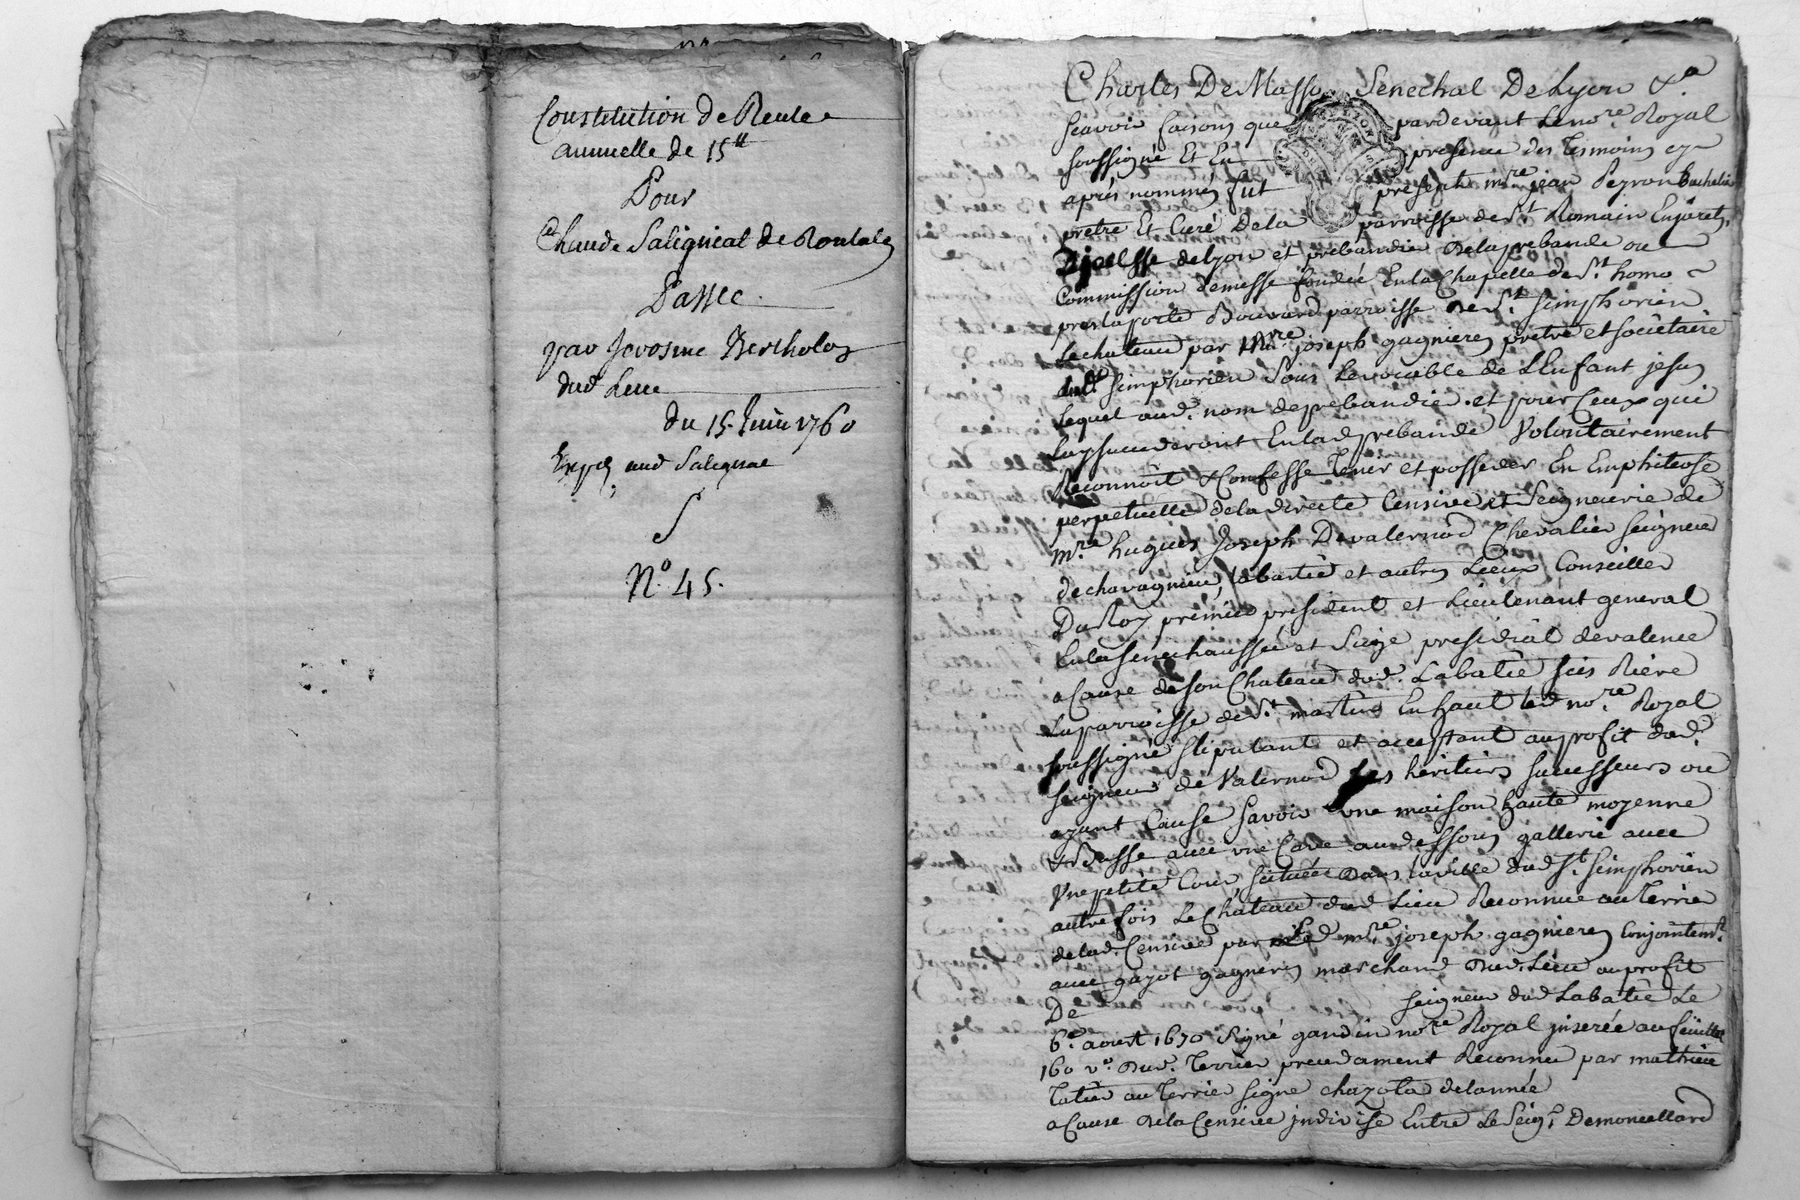 Constitution de Rente
annuelle de 15ᵗᵗ
Pour
Claude Salignat de
Passée
par Jerosme Bertholoz
dud Lieu
du 15. Juin 1760
Expᵉ aud Salignat
N.° 45.
Charles De Masso Senechal De Lyon &ᵃ
scavoir faisons que pardevant Le noʳᵉ Royal
soussigné Et En presence des Tesmoins cy
aprés nommés fut present mʳᵉ jean Peyron Bachelier
prétre Et Curé De la parroisse de Sᵗ Romain En jarets,
de Lyon et prebandié de la prebande ou
Commission de messe fondée En la Chapelle de Sᵗ homo
pres la porte Bouvard parroisse de Sᵗ Simphorien
Le chateau par Mʳᵉ joseph gagnieres prétre et societaire
dudᵗ Simphorien Sous Le vocable de L'Enfant jesus
Lequel aud. nom de prebandié et pour Ceux qui
Luy succederont En lad prebande Volontairement
Reconnoit & Confesse Tener et posseder En Emphiteose
perpetuelle de la directe Censive et Seigneurie de
mʳᵉ hugues Joseph De valernod Chevalier Seigneur
de chavagnieu, Labatié et autres Lieux Conseiller
Du Roy prémier president et Lieutenant general
En la Senechaussée et Siege presidial de valence
a Cause de son Chateau dud. Labatie sis Riére
La parroisse de Sᵗ martin En haut led noʳᵉ Royal
soussigné stipulant et acceptant au profit dud.
seigneur de Valernod ses heritiers successeurs ou
ayant Cause Savoir une maison haute moyenne
& Basse avec une Cave au dessous gallerie avec
Une petite Cour, scituée dans la ville dud Sᵗ Simphorien
autrefois Le Chateau dud Lieu Reconnue au Terrié
de lad. Censive par Led mʳᵉ joseph gagnieres Conjointemᵗ
avec gayot gagneres marchand dud. Lieu au profit
De seigneur dud Labatie Le
6ᵉ aoust 1670 signé gaudin noʳᵉ Royal inserée au feuillet
160 v.° dud. Terrier precedament Reconnu par mathieu
Tatié au Terrie signé chazota de lannée
a Cause de la Censive indivise Entre Le Seigʳ De moncellard